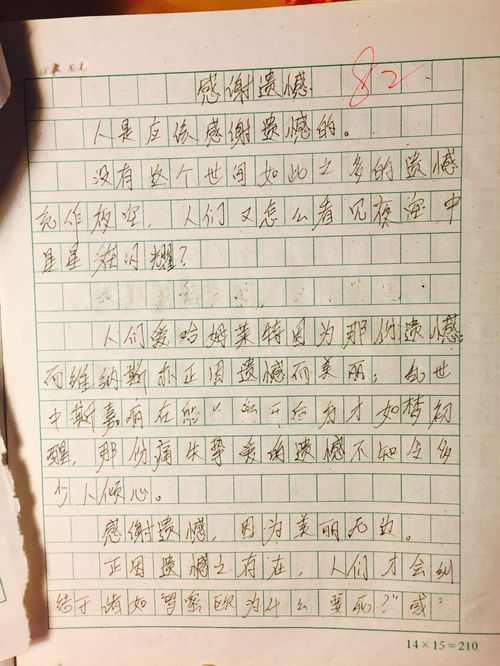 感谢遗憾
82
人是应该感谢遗憾的。
没有这个世间如此之多的遗憾
充作夜空，人们又怎么看见夜海中
星星在闪耀？
人们爱哈姆莱特因为那份遗憾；
而维纳斯亦正因遗憾而美丽；乱世
中斯嘉丽在 开后方才如梦初
醒，那份痛失挚爱的遗憾不知令多
少人倾心。
感谢遗憾，因为美丽无边。
正因遗憾之存在，人们才会纠
结于诸如“罗密欧为什么要死？”或
14×15=210